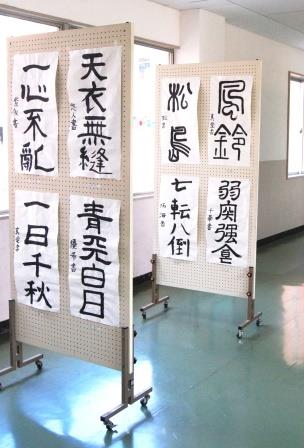 天衣無縫
一心不乱
青天白日
一日千秋
風鈴
松島
弱肉強食
七転八倒